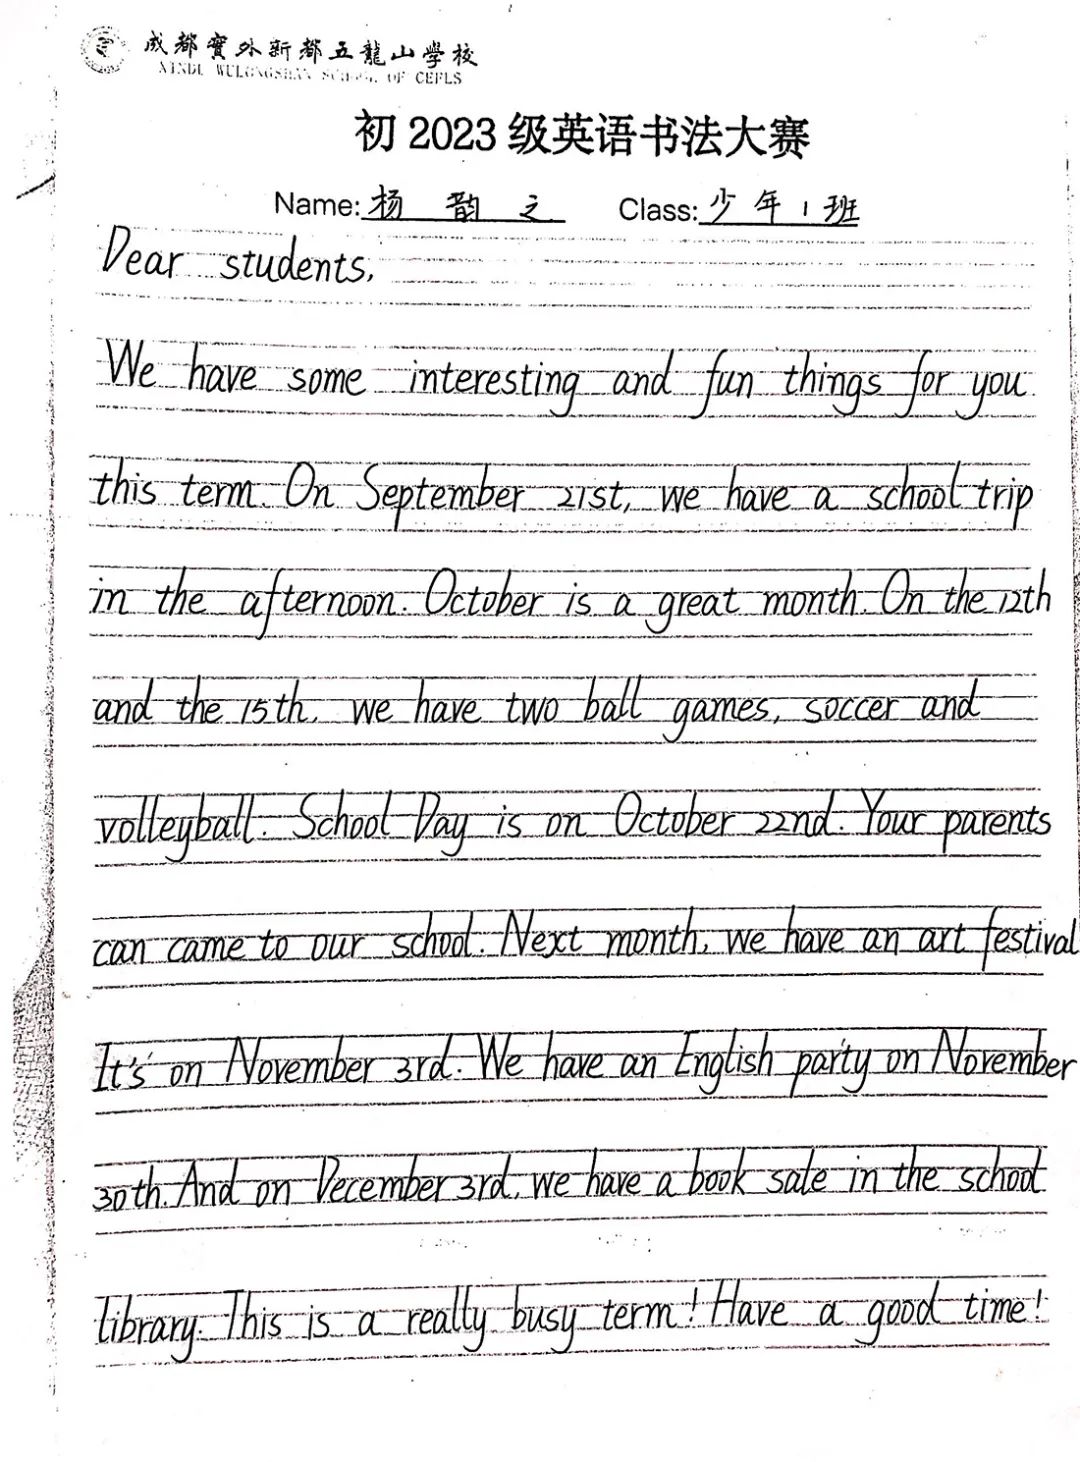 成都實外新都五龍山學校
XINDU WULONGSHAN SCHOOL OF CEFLS
初2023级英语书法大赛
Name: 杨韵之 Class: 少年1班
Dear students,
We have some interesting and fun things for you
this term. On September 21st, we have a school trip
in the afternoon. October is a great month. On the 12th
and the 15th, we have two ball games, soccer and
volleyball. School Day is on October 22nd. Your parents
can came to our school. Next month, we have an art festival
It's on November 3rd. We have an English party on November
30th. And on December 3rd, we have a book sale in the school
library. This is a really busy term! Have a good time!